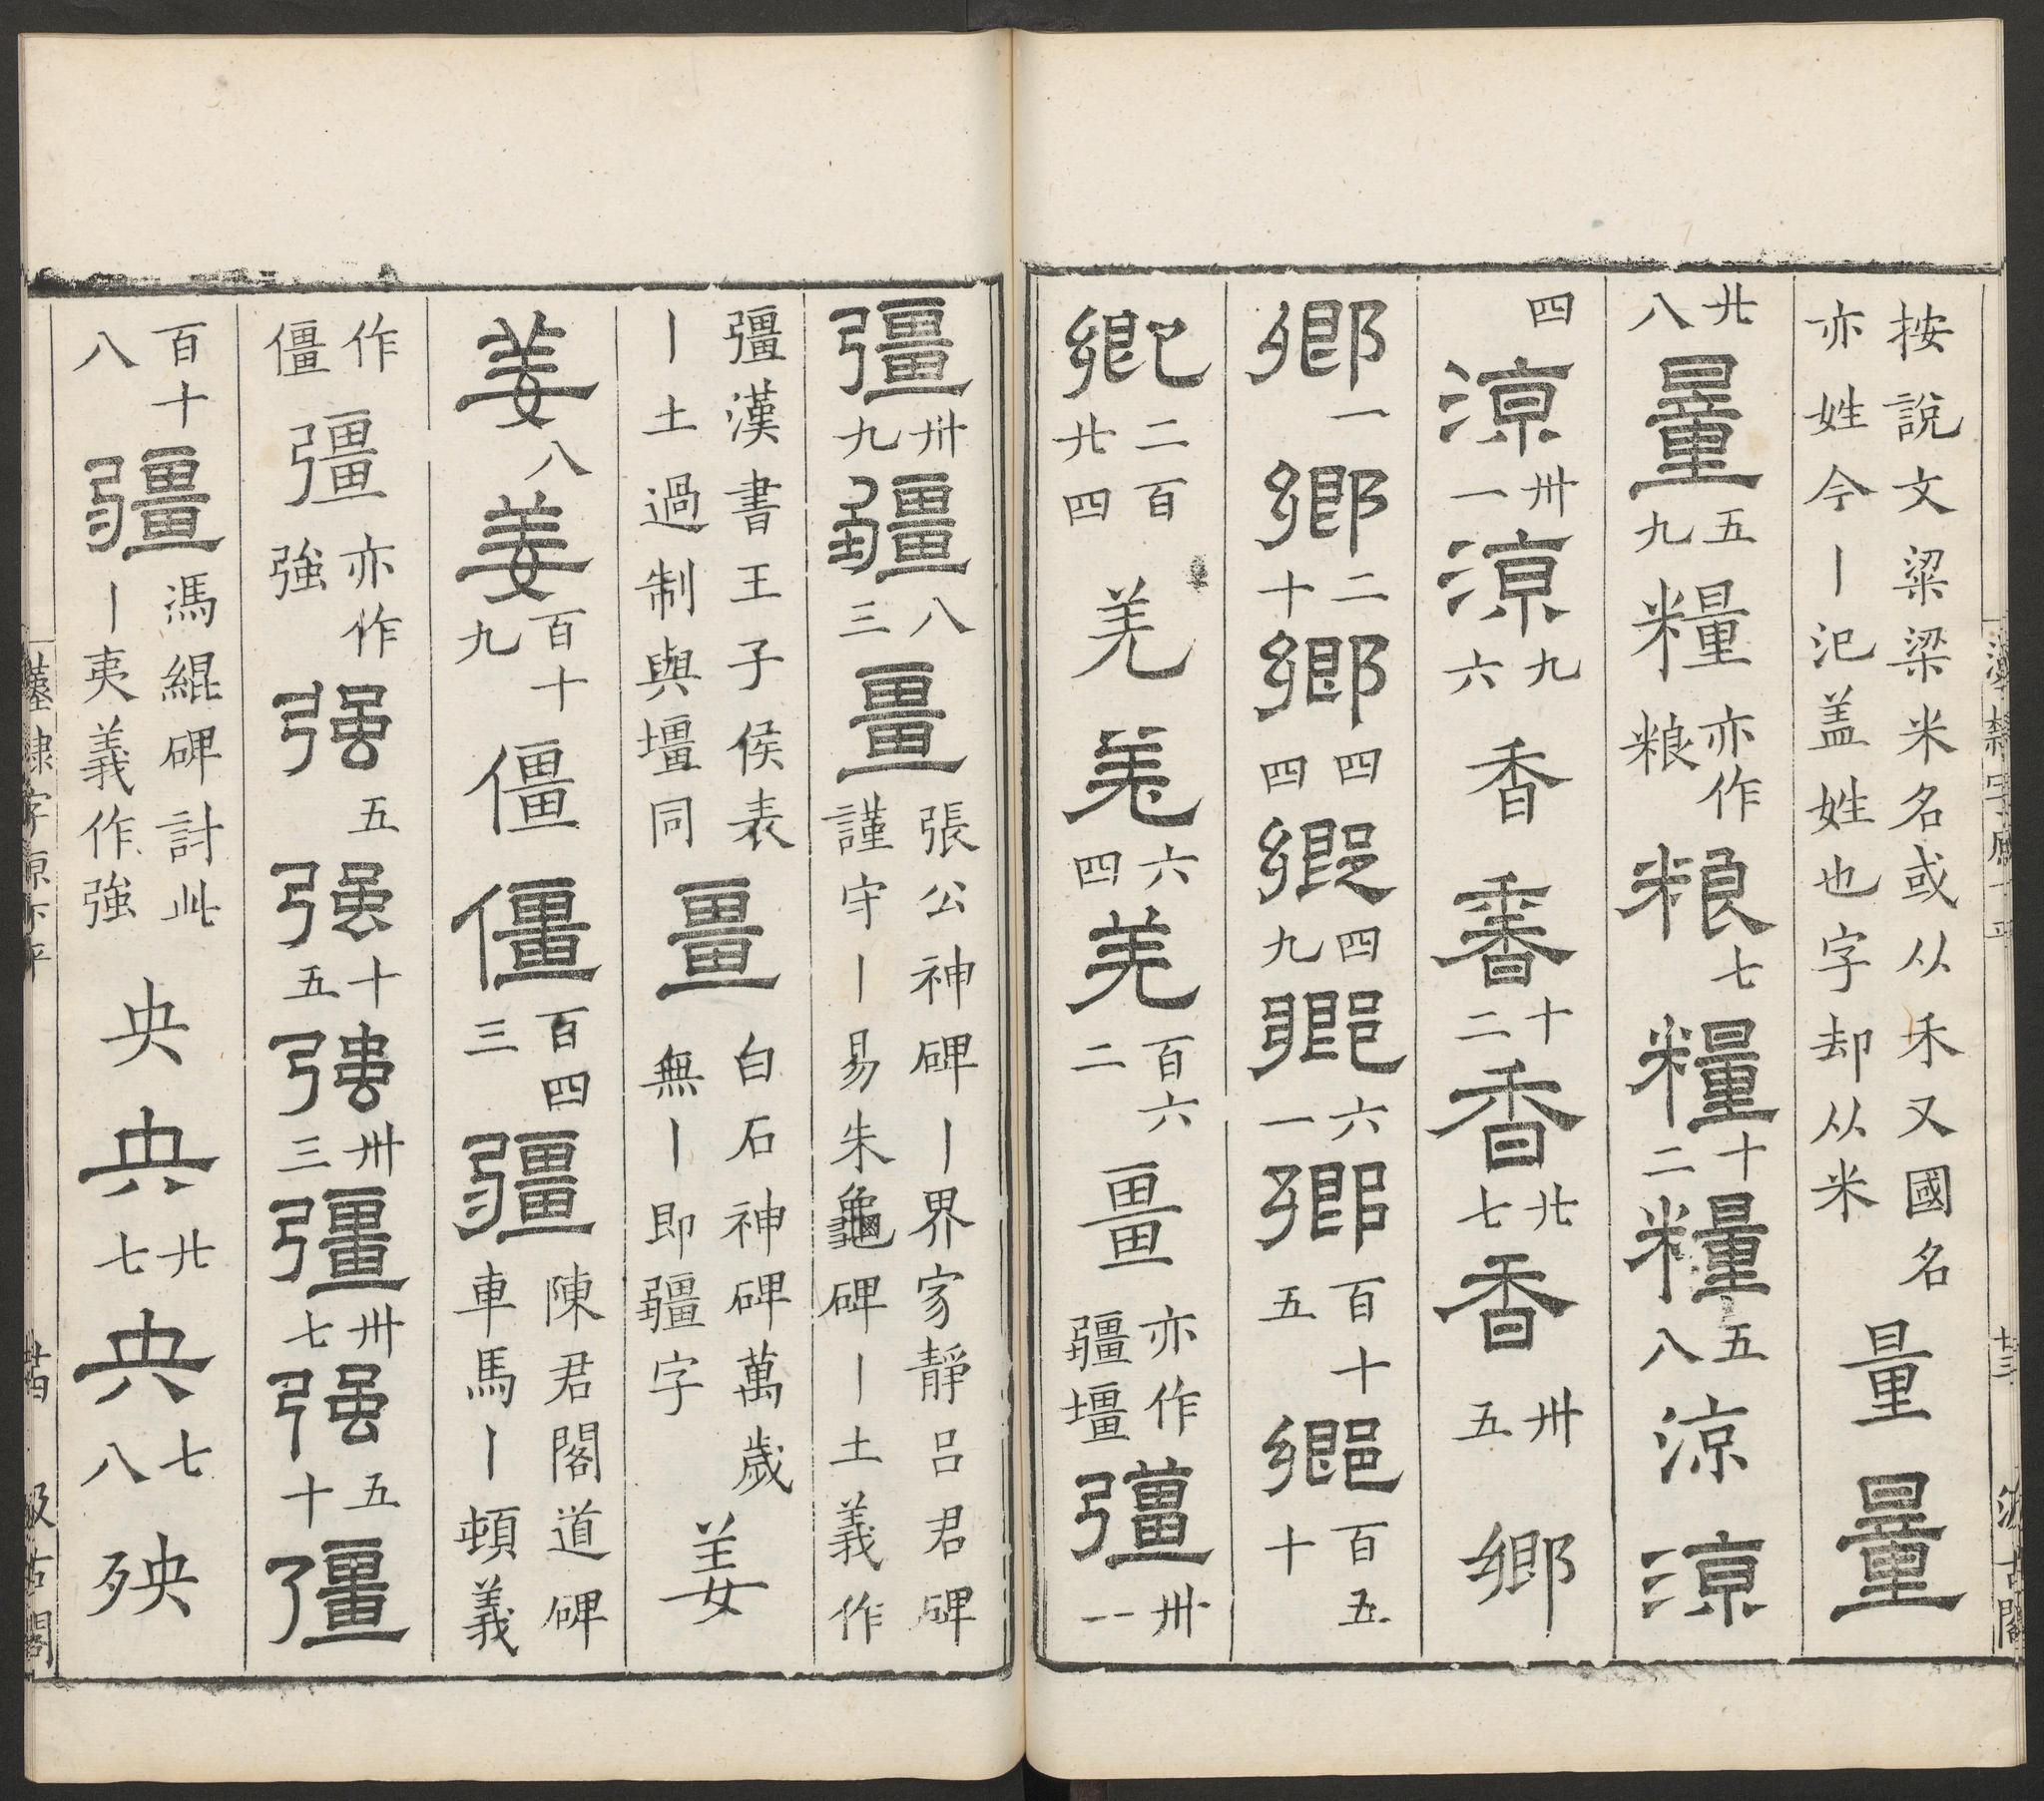 漢隸字原下平 廿三 汲古閣
按說文粱梁米名或从禾又國名亦姓今丨氾盖姓也字却从米 量 量
廿八 量 五九 糧 亦作粮 粮 七 糧 十二 糧 五八 涼 涼
四 涼 卅一 涼 九六 香 香 十二 香 廿七 香 卅五 鄉
鄉 一 鄉 二十 鄉 四四 鄉 四九 鄉 六一 鄉 百十五 鄉 百五十
鄉 二百廿四 羌 羌 六四 羌 百六二 畺 亦作疆壃 彊 卅一
彊 卅九 疆 八三 畺 張公神碑丨界家靜呂君碑謹守丨易朱龜碑丨土義作
彊漢書王子侯表丨土過制與壃同 畺 白石神碑萬歲無丨即疆字 姜
姜 八 姜 百十九 僵 僵 百四三 疆 陳君閣道碑車馬丨頓義
作僵 彊 亦作強 强 五 强 十五 强 卅三 彊 卅七 强 五十 彊
百十八 疆 馮緄碑討此丨夷義作強 央 央 廿七 央 七八 殃
漢隸字原下平 廿四 汲古閣